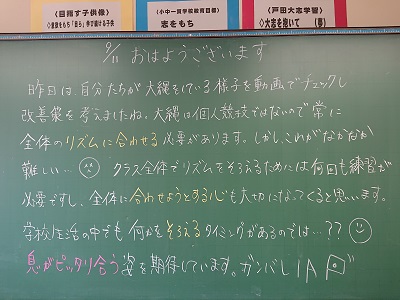 〈目指す子供像〉
志をもち「自ら」学び続ける子供
〈小中一貫学校教育目標〉
志をもち
〈戸田大志学習〉
◇大志を抱いて （夢）
9/11 おはようございます
昨日は、自分たちが大縄をしている様子を動画でチェックし
改善策を考えましたね。大縄は個人競技ではないので常に
全体のリズムに合わせる必要があります。しかし、これがなかなか
難しい… クラス全体でリズムをそろえるためには何回も練習が
必要ですし、全体に合わせようとする心も大切になってくると思います。
学校生活の中でも何かをそろえるタイミングがあるのでは…??
息がピッタリ合う姿を期待しています。ガンバレ1A